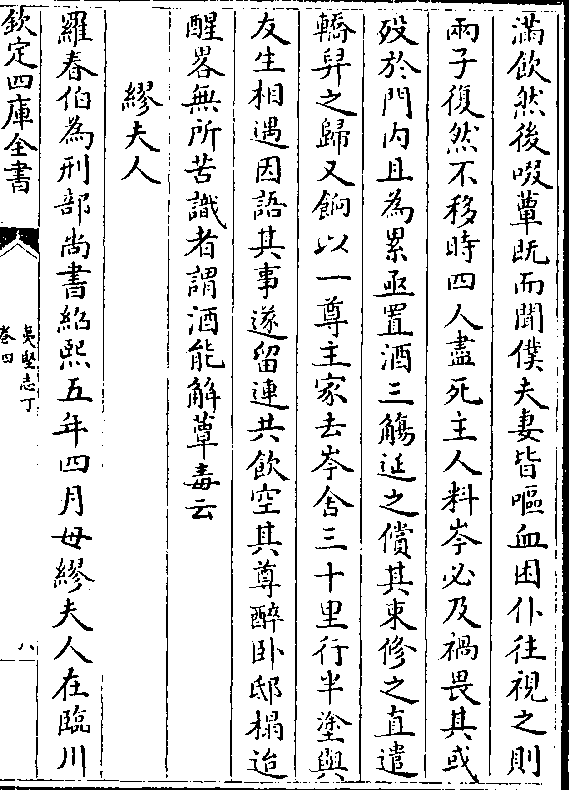 滿飲然後啜蕈既而聞僕夫妻皆嘔血困仆往視之則
兩子復然不移時四人盡死主人料岑必及禍畏其或
歿於門内且為累亟置酒三觴延之償其束修之直遣
轎舁之歸又餉以一尊主家去岑舍三十里行半塗與
友生相遇因語其事遂留連共飲空其尊醉卧邸榻迨
醒畧無所苦識者謂酒能解蕈毒云
繆夫人
羅春伯為刑部尚書紹熙五年四月母繆夫人在臨川
欽定四庫全書
夷堅志丁
卷四
八